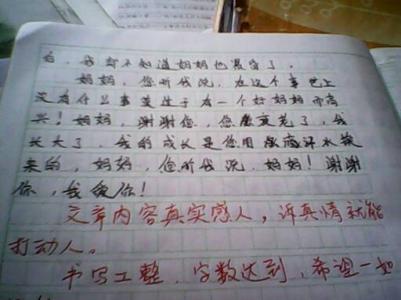 白，我却不知道妈妈也瘦多了。
妈妈，您听我说，在这个事上
没有什么事英生于有一个好妈妈而高
兴！妈妈，谢谢您，您变老了，我
长大了，我的成长是您用血汗水换
来的，妈妈，您听我说，妈妈！谢谢
你，我爱你！
文章内容真实感人，诉真情就能
打动人。
书写工整，字数达到，希望一如